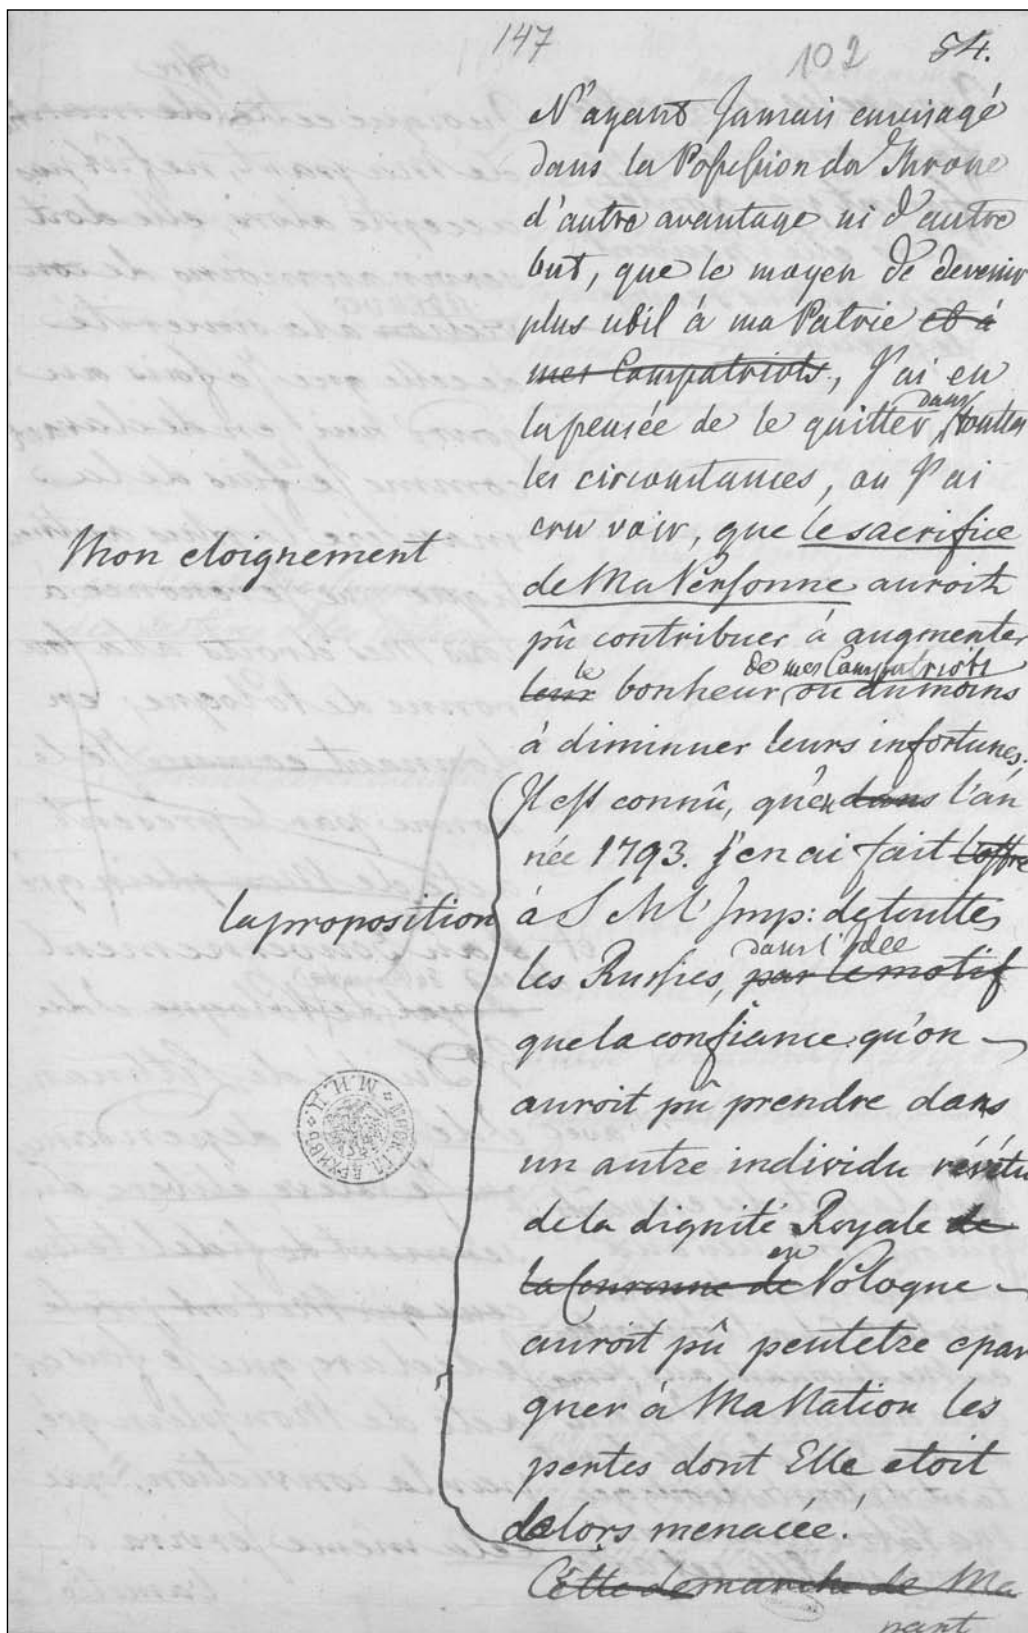 147
102 84.
N'ayant Jamais envisagé
dans la Possession du Throne
d'autre avantage ni d'autre
but, que le moyen de devenir
plus util à ma Patrie et à
mes Compatriots, J'ai eu
la pensée de le quitter dans touttes
les circonstances, ou J'ai
cru voir, que le sacrifice
Mon eloignement
de Ma Personne auroit
pû contribuer à augmenter
leur le bonheur de mes Compatriots ou du moins
à diminuer leurs infortunes;
Il est connû, qu'en dans l'an
née 1793. j'en ai fait l'offre
la proposition
à S M l'Imp: de touttes
les Russies, dans l'Idée par le motif
que la confiance, qu'on
auroit pû prendre dans
un autre individu révétu
de la dignité Royale de
la Couronne de en Pologne
auroit pû peutetre epar
gner à Ma Nation les
pertes dont Elle etoit
delors menacée.
Cette demarche de Ma
part